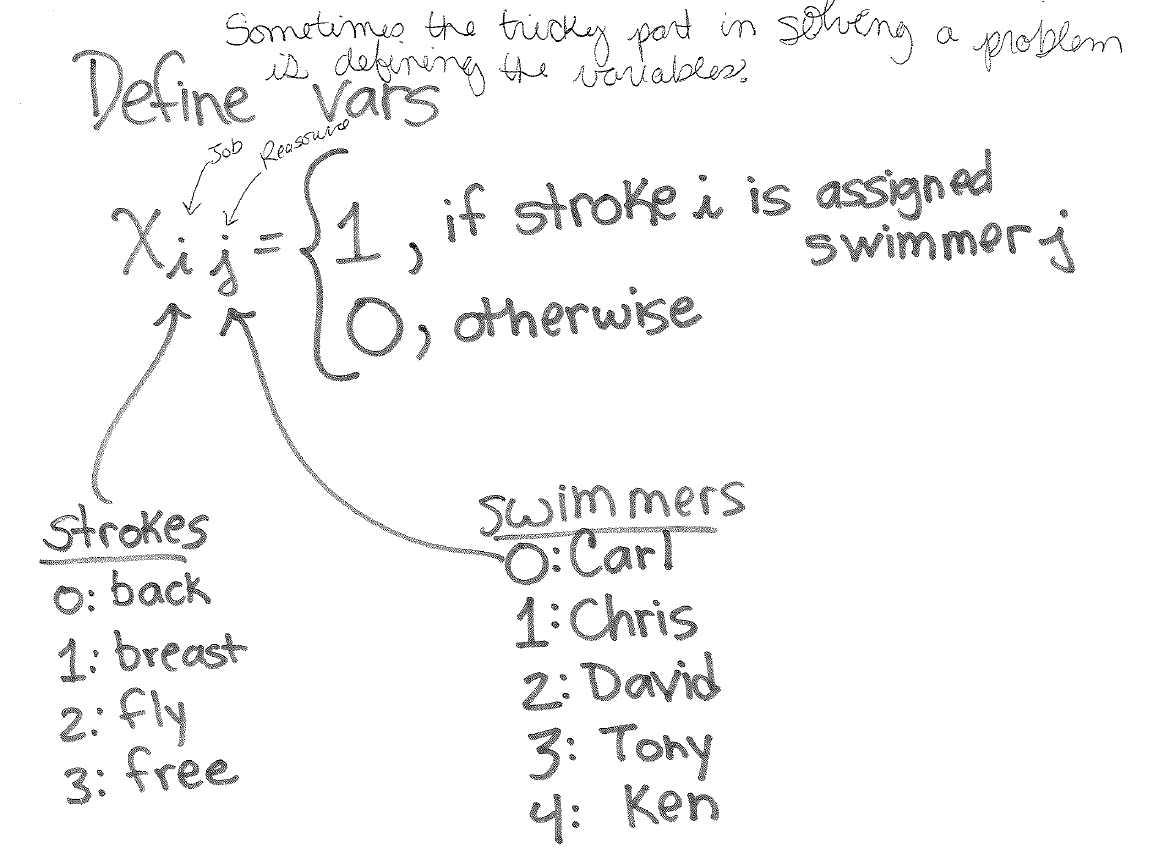 Sometimes the tricky part in solving a problem
is defining the variables.
Define Vars
Job Reasource
Xij = { 1, if stroke i is assigned
swimmer j
0, otherwise
strokes
0: back
1: breast
2: fly
3: free
swimmers
0: Carl
1: Chris
2: David
3: Tony
4: Ken